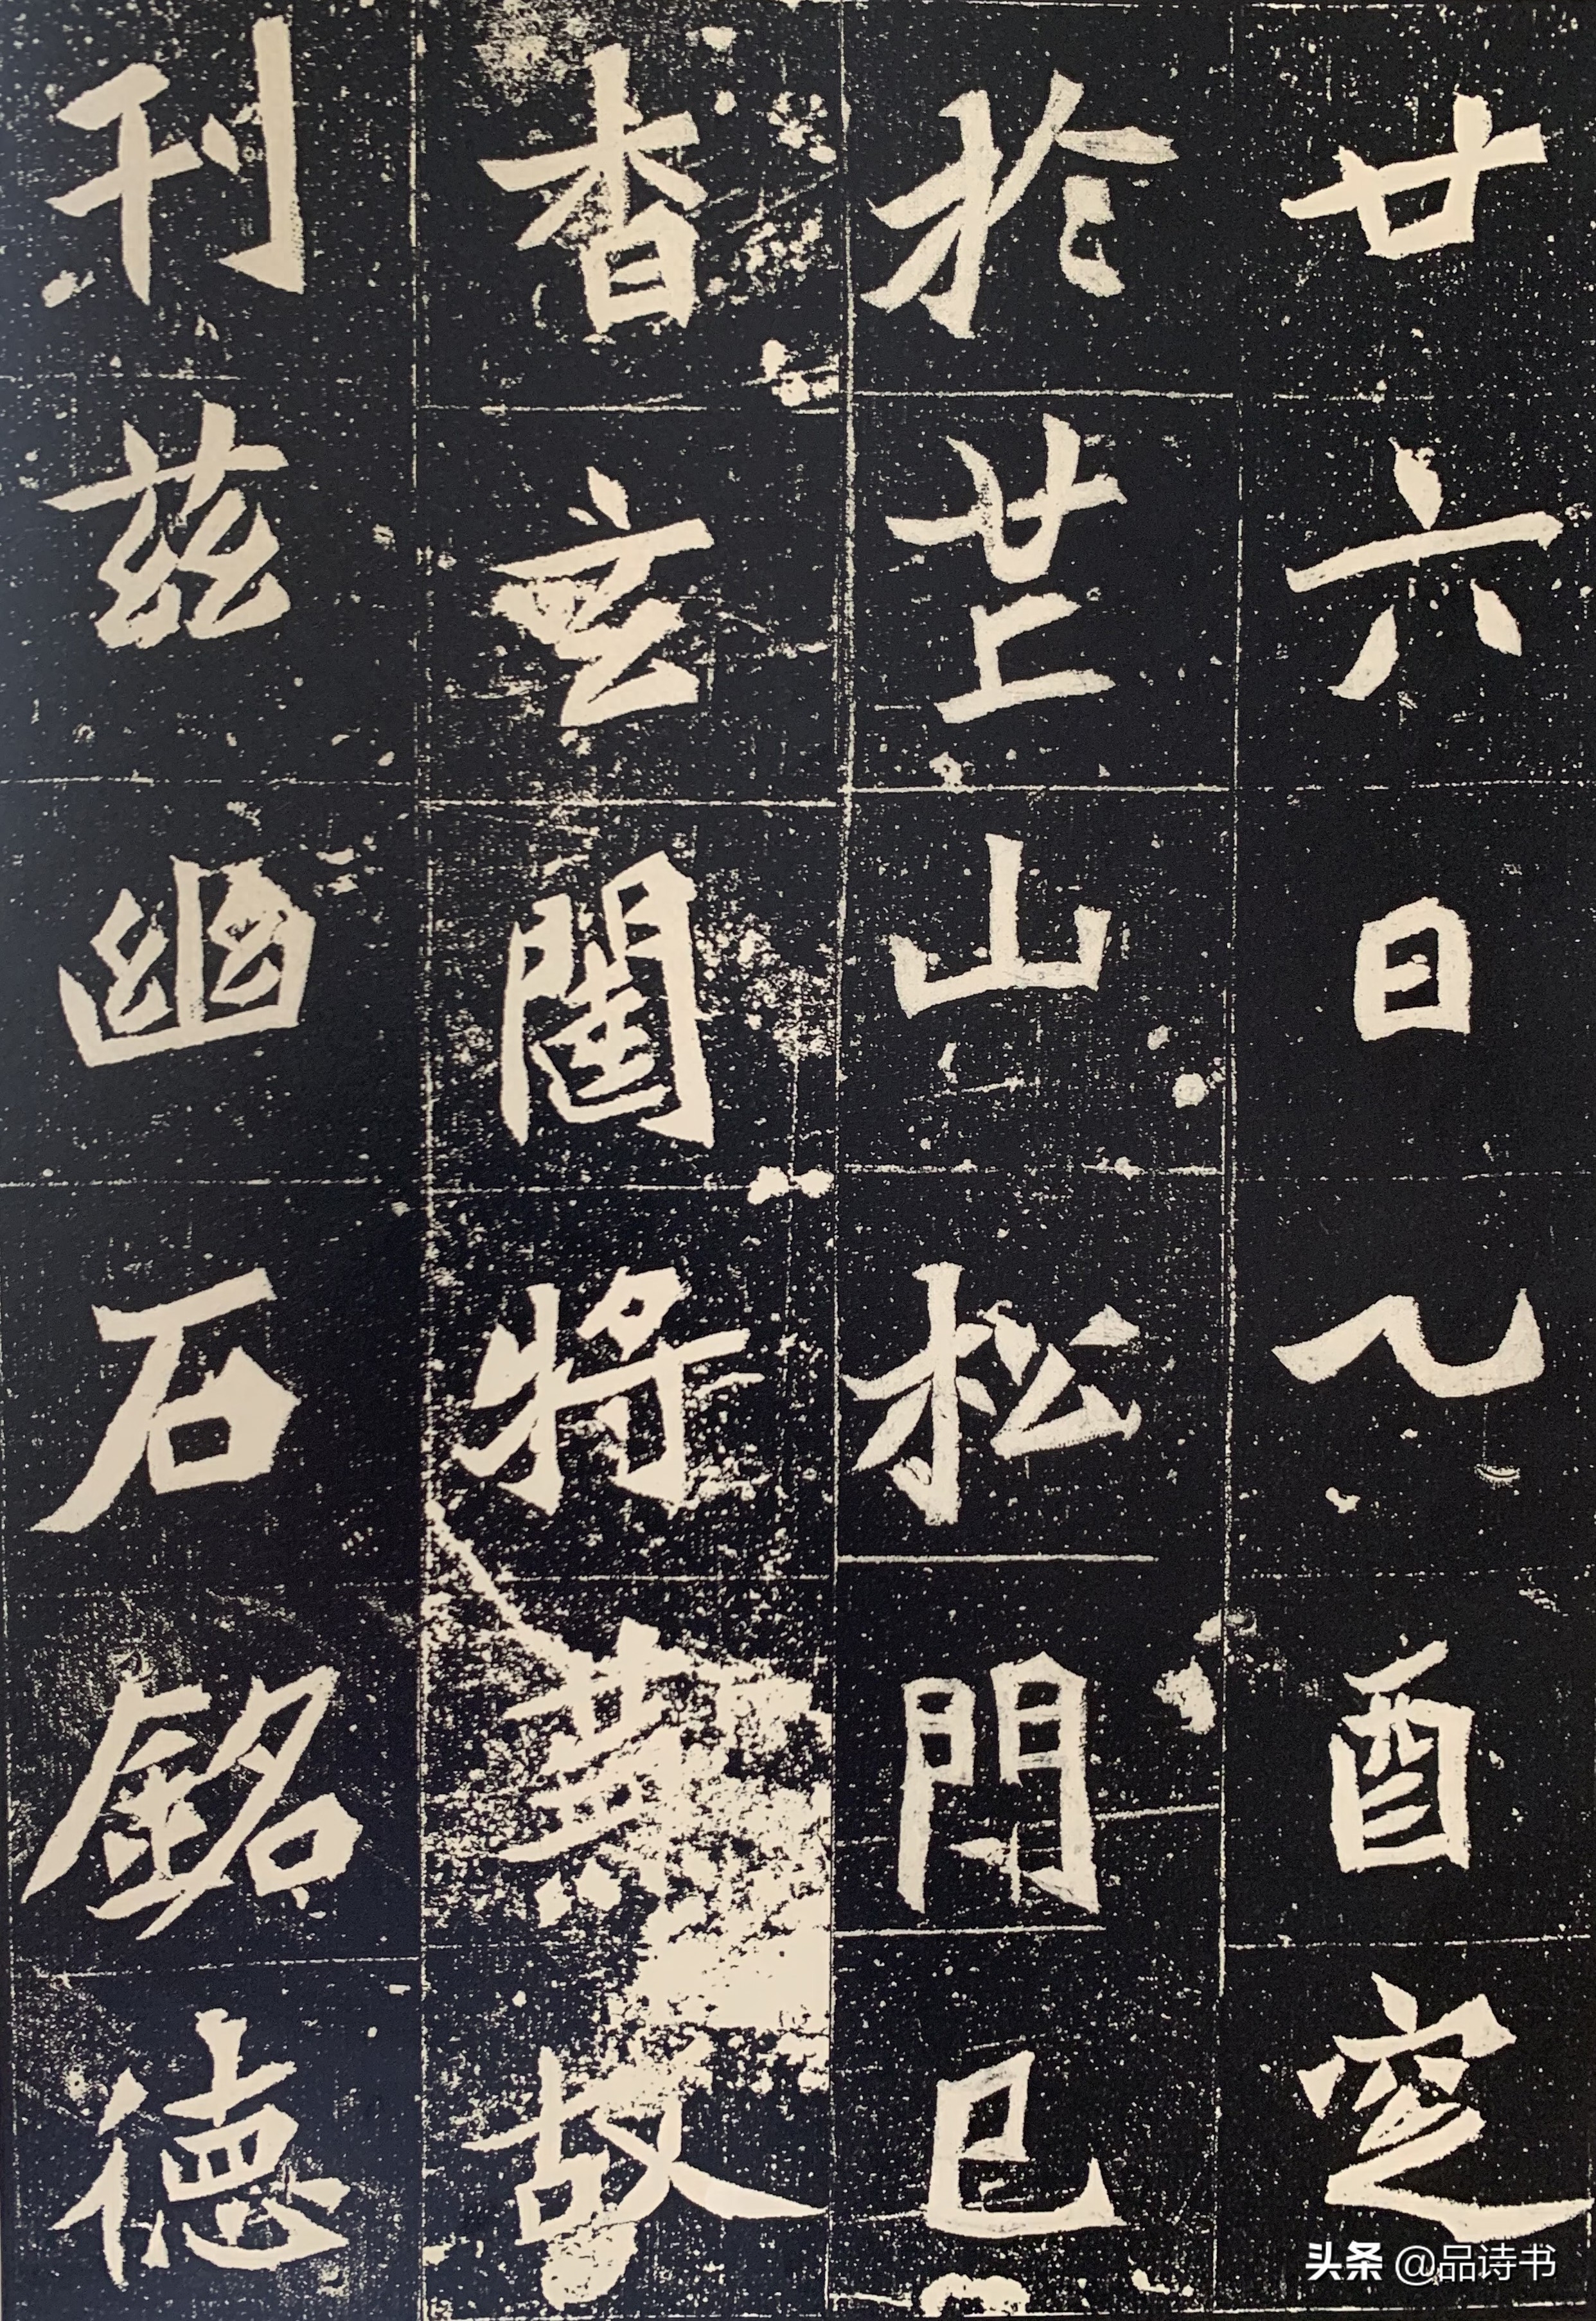 廿六日乙酉窆
於芒山松門已
杳玄閨將蕪故
刊兹幽石銘德
头条 @品诗书